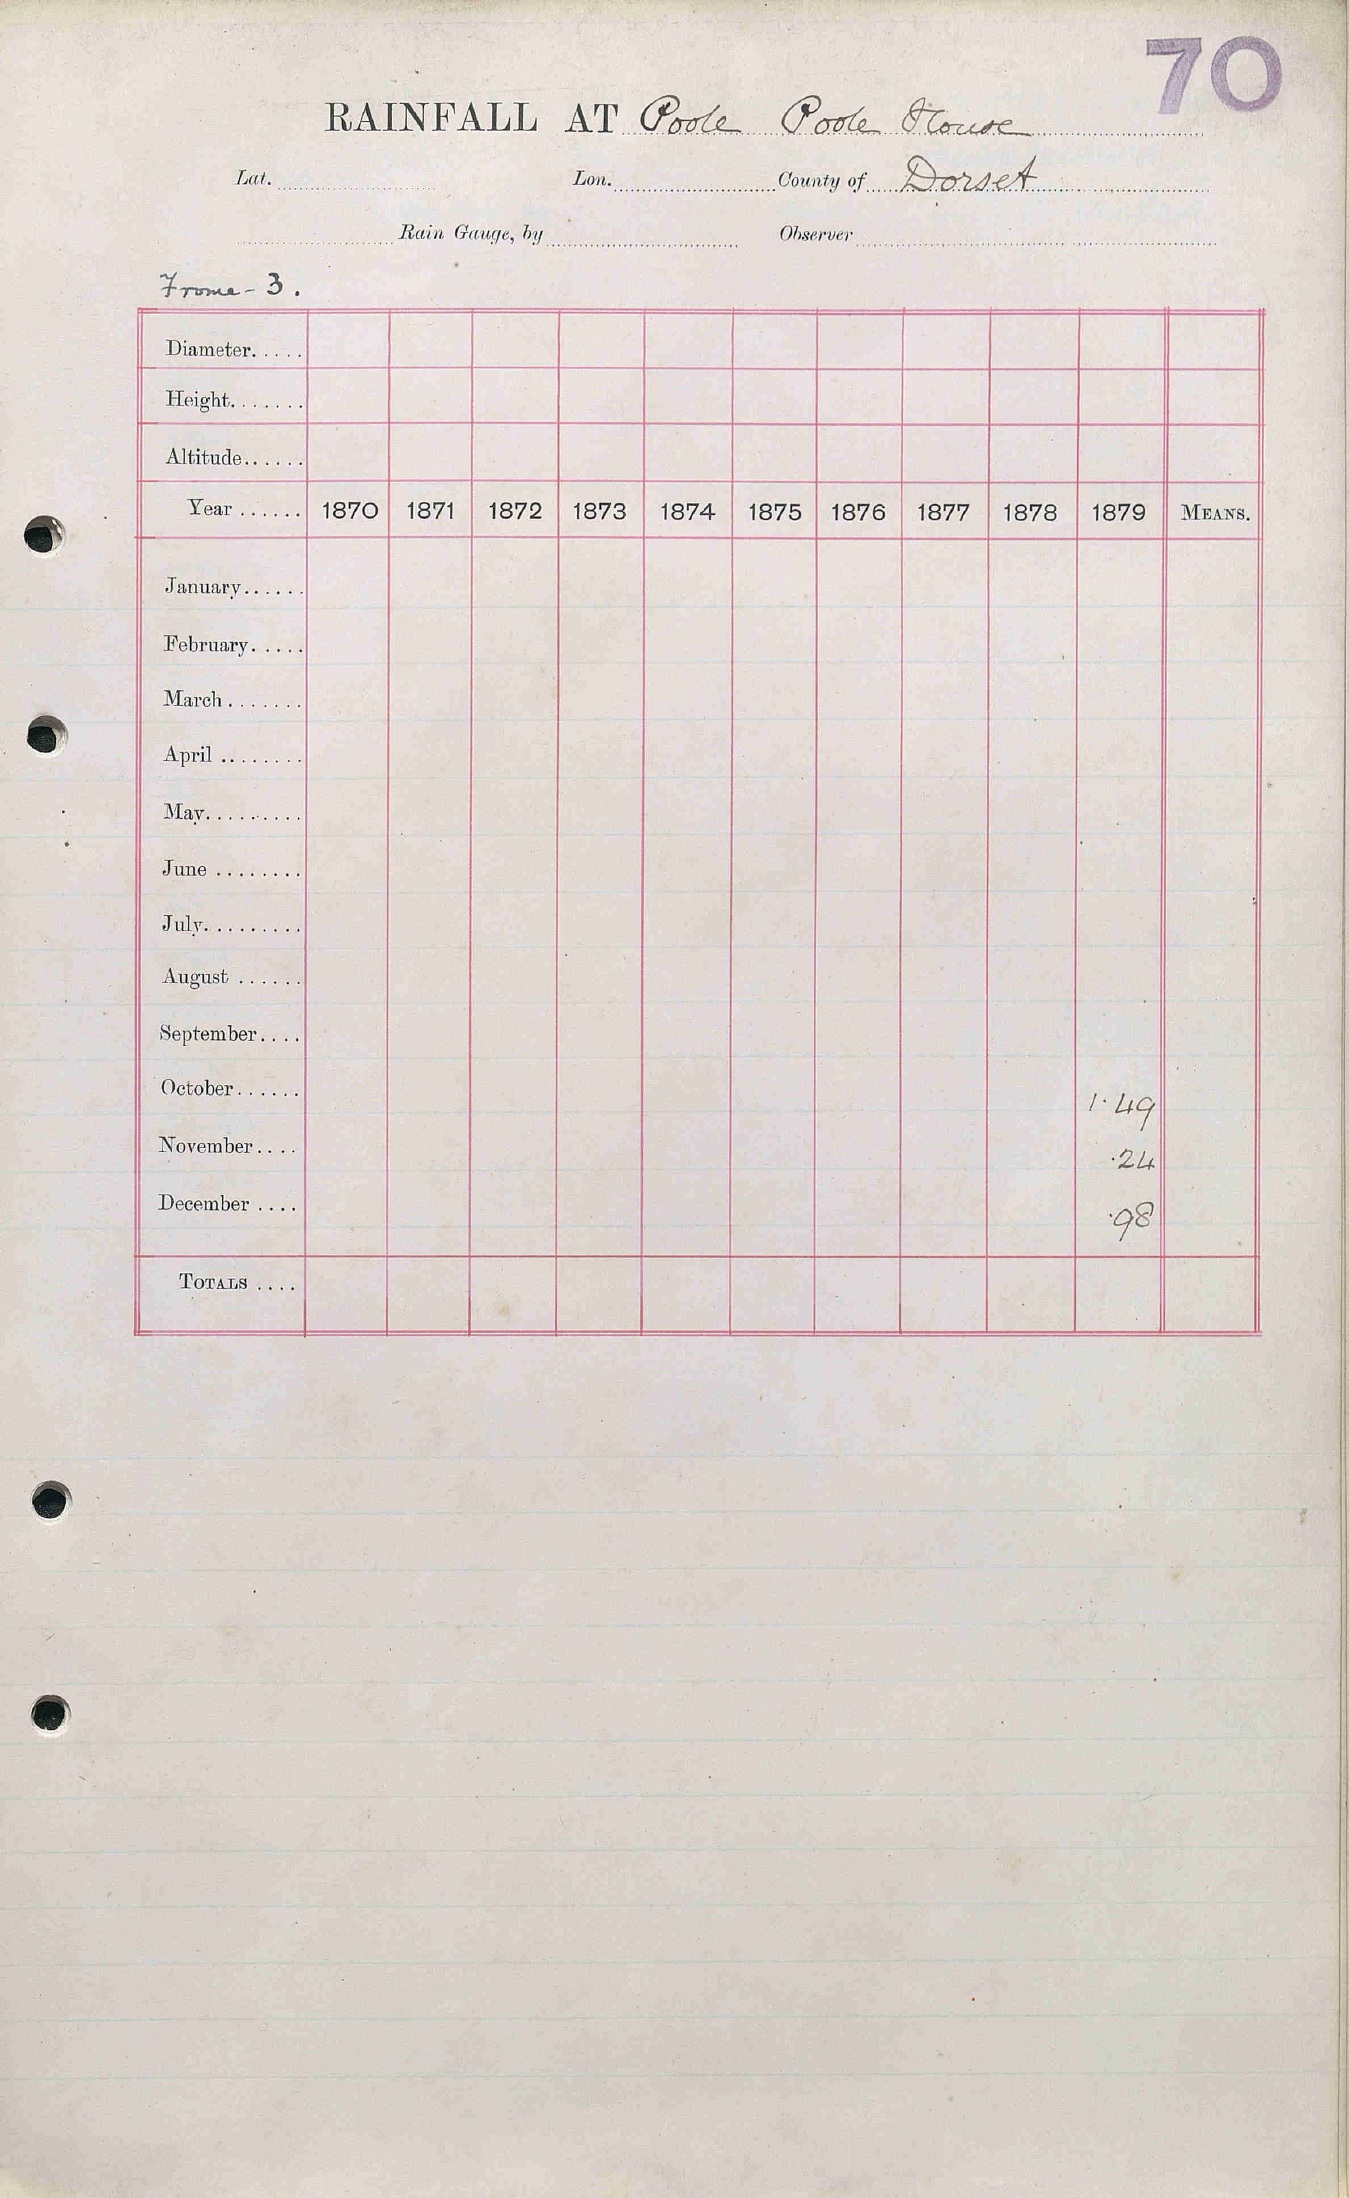 70
RAINFALL AT Poole Poole House
Lat. Lon. County of Dorset
Rain Gauge, by Observer
Frome - 3.
Diameter.....
Height.......
Altitude......
Year ...... 1870 1871 1872 1873 1874 1875 1876 1877 1878 1879 MEANS.
January......
February.....
March .......
April ........
May.........
June ........
July.........
August ......
September....
October...... 1.49
November.... .24
December .... .98
TOTALS ....